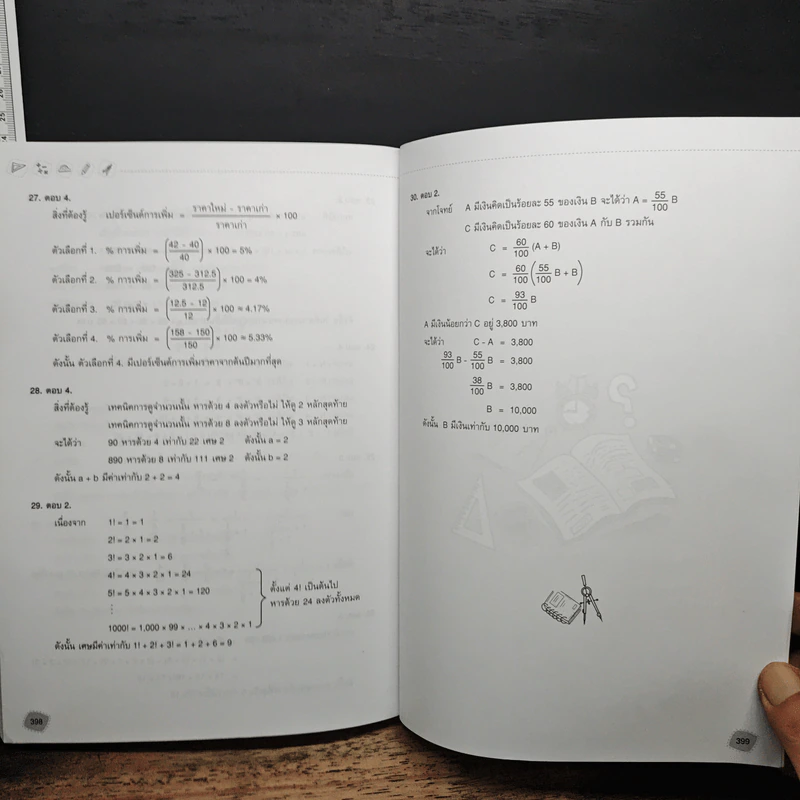 27. ตอบ 4.
สิ่งที่ต้องรู้ เปอร์เซ็นต์การเพิ่ม = (ราคาใหม่ - ราคาเก่า) / ราคาเก่า × 100
ตัวเลือกที่ 1. % การเพิ่ม = ((42 - 40) / 40) × 100 = 5%
ตัวเลือกที่ 2. % การเพิ่ม = ((325 - 312.5) / 312.5) × 100 = 4%
ตัวเลือกที่ 3. % การเพิ่ม = ((12.5 - 12) / 12) × 100 ≈ 4.17%
ตัวเลือกที่ 4. % การเพิ่ม = ((158 - 150) / 150) × 100 ≈ 5.33%
ดังนั้น ตัวเลือกที่ 4. มีเปอร์เซ็นต์การเพิ่มราคาจากต้นปีมากที่สุด
28. ตอบ 4.
สิ่งที่ต้องรู้ เทคนิคการดูจำนวนนั้น หารด้วย 4 ลงตัวหรือไม่ ให้ดู 2 หลักสุดท้าย
เทคนิคการดูจำนวนนั้น หารด้วย 8 ลงตัวหรือไม่ ให้ดู 3 หลักสุดท้าย
จะได้ว่า 90 หารด้วย 4 เท่ากับ 22 เศษ 2 ดังนั้น a = 2
890 หารด้วย 8 เท่ากับ 111 เศษ 2 ดังนั้น b = 2
ดังนั้น a + b มีค่าเท่ากับ 2 + 2 = 4
29. ตอบ 2.
เนื่องจาก 1! = 1 = 1
2! = 2 × 1 = 2
3! = 3 × 2 × 1 = 6
4! = 4 × 3 × 2 × 1 = 24
5! = 5 × 4 × 3 × 2 × 1 = 120
⋮
1000! = 1,000 × 99 × ... × 4 × 3 × 2 × 1
ตั้งแต่ 4! เป็นต้นไป
หารด้วย 24 ลงตัวทั้งหมด
ดังนั้น เศษมีค่าเท่ากับ 1! + 2! + 3! = 1 + 2 + 6 = 9
398
30. ตอบ 2.
จากโจทย์ A มีเงินคิดเป็นร้อยละ 55 ของเงิน B จะได้ว่า A = 55/100 B
C มีเงินคิดเป็นร้อยละ 60 ของเงิน A กับ B รวมกัน
จะได้ว่า C = 60/100 (A + B)
C = 60/100 (55/100 B + B)
C = 93/100 B
A มีเงินน้อยกว่า C อยู่ 3,800 บาท
จะได้ว่า C - A = 3,800
93/100 B - 55/100 B = 3,800
38/100 B = 3,800
B = 10,000
ดังนั้น B มีเงินเท่ากับ 10,000 บาท
399